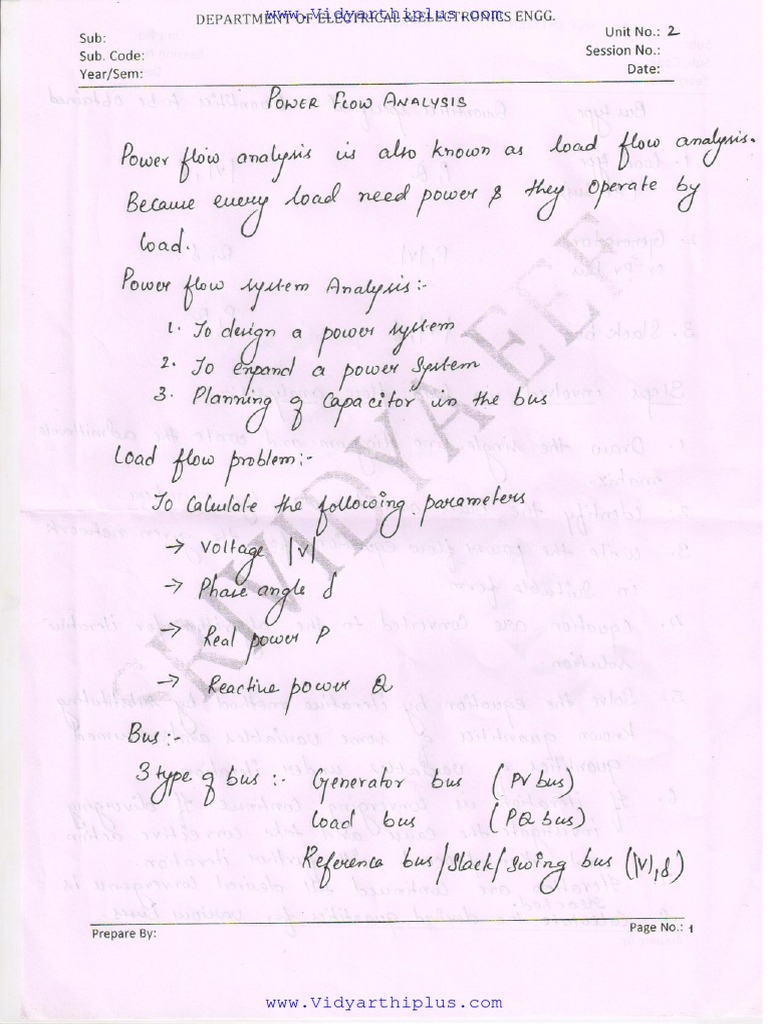 www.Vidyarthiplus.com
DEPARTMENT OF ELECTRICAL & ELECTRONICS ENGG.
Sub:
Unit No.: 2
Sub. Code:
Session No.:
Year/Sem:
Date:
POWER FLOW ANALYSIS
Power flow analysis is also known as load flow analysis.
Because every load need power & they operate by
load.
Power flow system Analysis:-
1. To design a power system
2. To expand a power system
3. Planning of capacitor in the bus
Load flow problem:-
To Calculate the following parameters
→ Voltage |V|
→ Phase angle δ
→ Real power P
→ Reactive power Q
Bus:-
3 type of bus:- Generator bus (PV bus)
Load bus (PQ bus)
Reference bus/Slack/Swing bus (|V|,δ)
Prepare By:
Page No.: 1
www.Vidyarthiplus.com